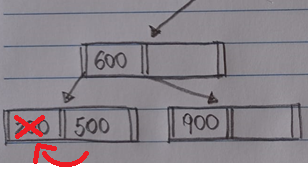 600
500 900